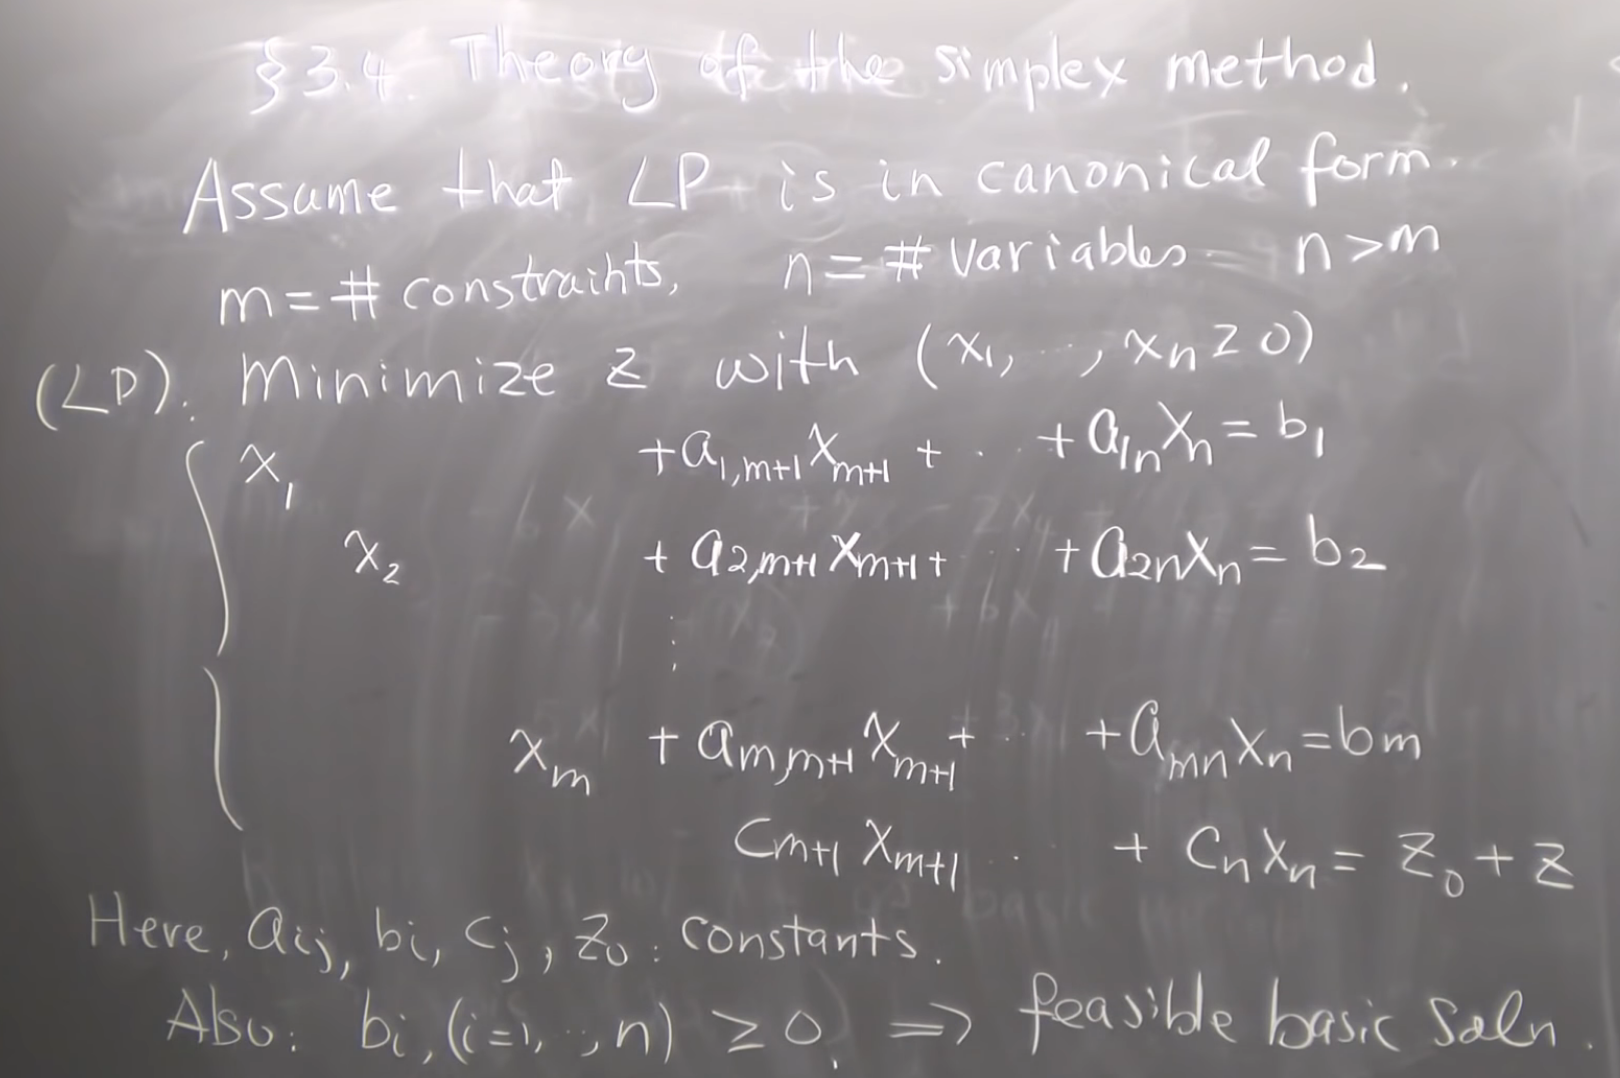 §3.4. Theory of the simplex method.
Assume that LP is in canonical form.
m = # constraints, n = # variables n > m
(LP). Minimize z with (x₁, ..., xₙ ≥ 0)
x₁ + a₁,ₘ₊₁ xₘ₊₁ + ... + a₁ₙxₙ = b₁
x₂ + a₂,ₘ₊₁ xₘ₊₁ + ... + a₂ₙxₙ = b₂
⋮
xₘ + aₘ,ₘ₊₁ xₘ₊₁ + ... + aₘₙxₙ = bₘ
cₘ₊₁ xₘ₊₁ ... + cₙxₙ = z₀ + z
Here, aᵢⱼ, bᵢ, cⱼ, z₀ : constants.
Also: bᵢ, (i=1, .., n) ≥ 0, ⇒ feasible basic soln.